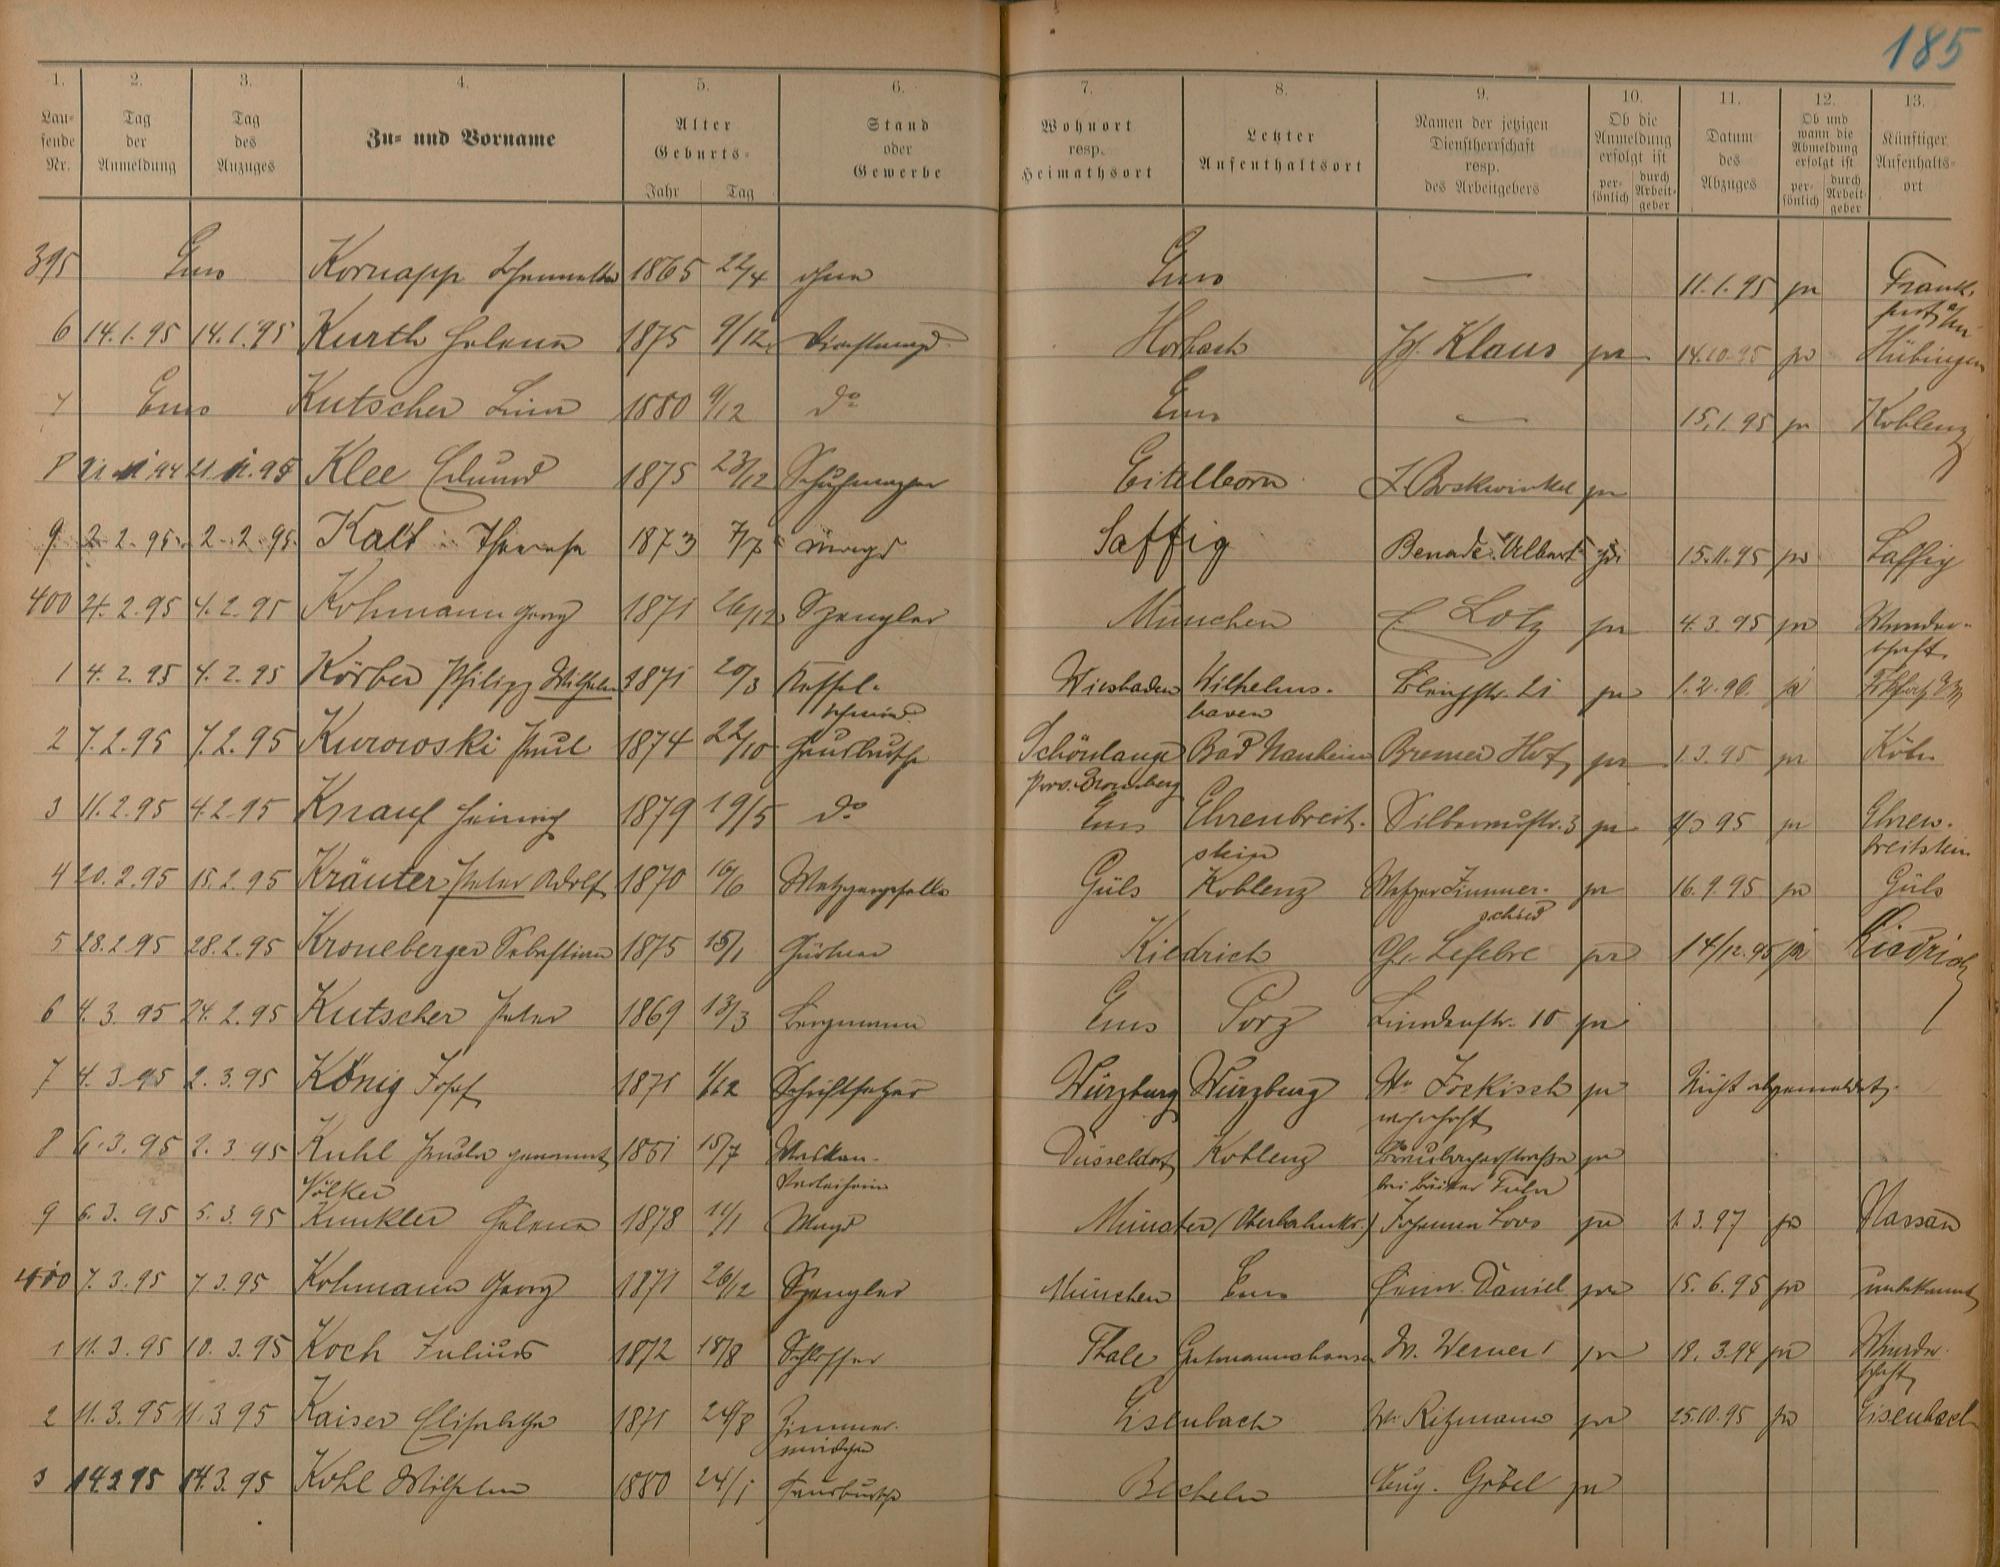 185
1. 2. 3. 4. 5. 6. 7. 8. 9. 10. 11. 12. 13.
Lau-fende Nr. Tag der Anmeldung Tag des Anzuges Zu- und Vorname Alter Geburts- Jahr Tag Stand oder Gewerbe Wohnort resp. Heimathsort Letzter Aufenthaltsort Namen der jetzigen Dienstherrschaft resp. des Arbeitgebers Ob die Anmeldung erfolgt ist per-sönlich durch Arbeit-geber Datum des Abzuges Ob und wann die Abmeldung erfolgt ist per-sönlich durch Arbeit-geber Künftiger Aufenhalts-ort
395 Ems Kornapp 1865 22/4 ohne Ems — 11.1.95 pr Frank-
furt a/M
6 14.1.95 14.1.95 Kurth Helena 1875 9/12 Dienstmagd Horbach Jos. Klaus pr 14.10.95 pr Hübingen
7 Ems Kutscher Lina 1880 9/12 do Ems — 15.1.95 pr Koblenz
8 Klee Edmund 1875 23/12 Schuhmacher Eitelborn pr
9 2.2.95 2.2.95 Kalt Therese 1873 7/7 Magd Saffig Benade Albert pr 15.11.95 pr Saffig
400 4.2.95 4.2.95 Kohmann Georg 1871 26/12 Spengler München C. Lotz pr 4.3.95 pr Wander-
schaft
1 4.2.95 4.2.95 Körber Philipp Wilhelm 1871 20/3 Kessel- Wiesbaden Wilhelms- Bleichstr. 21 pr 1.2.96 pr
schmied haven
2 7.2.95 7.2.95 Kurowski Paul 1874 22/10 Hausbursche Schönlange Bad Nauheim Bremer Hof pr 1.3.95 pr Köln
Prov. Bromberg
3 11.2.95 4.2.95 Knauf Heinrich 1879 19/5 do Ems Ehrenbreit- Silberaustr. 3 pr 95 pr Ehren-
stein breitstein
4 20.2.95 15.2.95 Kräuter Peter Adolf 1870 10/6 Metzgergeselle Güls Koblenz Metzger Zimmer- pr 16.9.95 pr Güls
schied
5 28.2.95 28.2.95 Kroneberger Sebastian 1875 15/1 Gärtner Kiedrich Lefebre pr 14/12.95 pr Kiedrich
6 4.3.95 24.2.95 Kutscher Peter 1869 13/3 Bergmann Ems Porz Lindenstr. 10 pr
7 4.3.95 2.3.95 König Josef 1871 1/12 Schriftsetzer Würzburg Würzburg Jockisch pr Nicht abgemeldet
wohnhaft
8 6.3.95 2.3.95 Kuhl genannt 15/7 Masken- Düsseldorf Koblenz Braubacherstrasse pr
Völker Verleiherin bei
9 6.3.95 5.3.95 Kunkler Helena 1878 11/1 Magd Münster (Oberlahnkr.) Johann Loos pr 1.3.97 pr Nassau
410 7.3.95 7.3.95 Kohmann Georg 1871 26/12 Spengler München Ems Heinr. Daniel pr 15.6.95 pr unbekannt
1 11.3.95 10.3.95 Koch Julius 1872 18/8 Schlosser Thale Gutmannshausen W. Werner pr 18.3.94 pr Wander-
schaft
2 11.3.95 11.3.95 Kaiser Elisabetha 1871 24/8 Zimmer- Eisenbach Ritzmann pr 25.10.95 pr Eisenbach
mädchen
3 14.3.95 14.3.95 Kohl Wilhelm 1880 24/1 Hausbursche Becheln Aug. Göbel pr